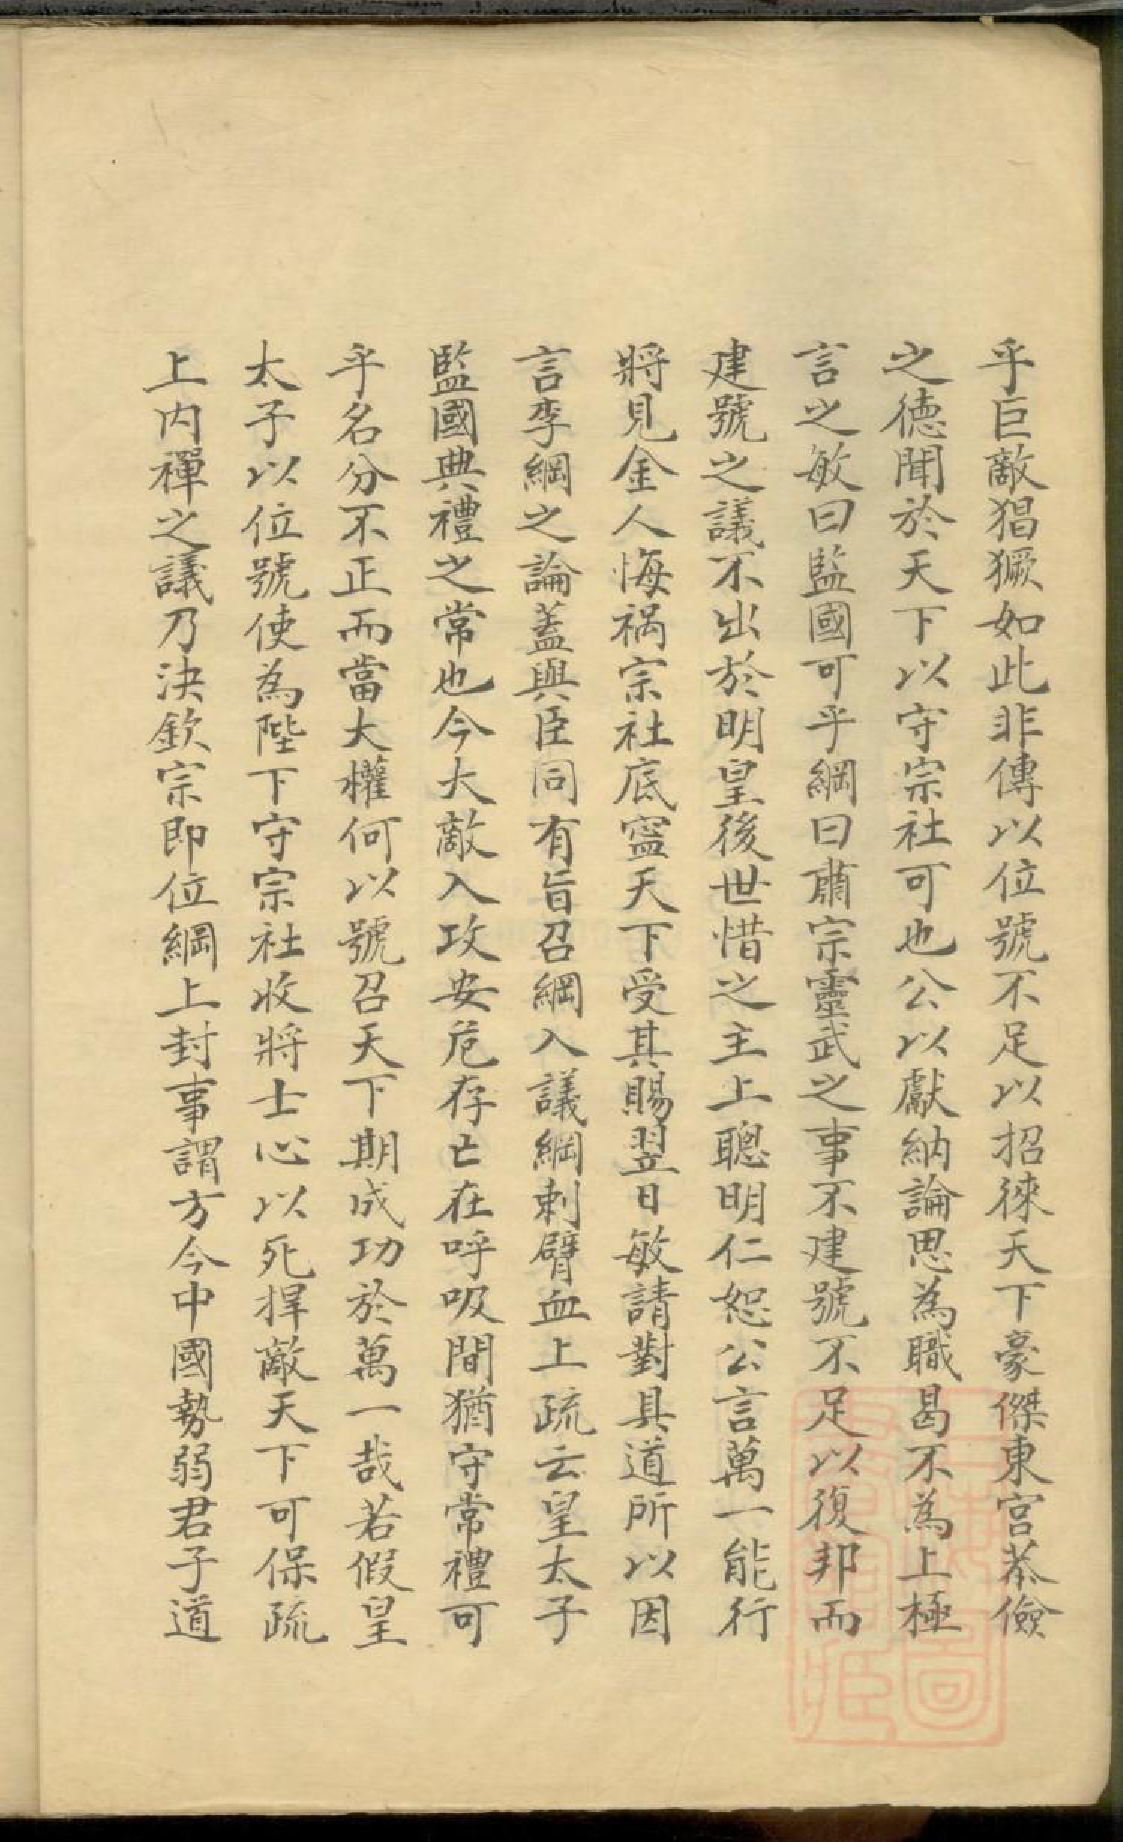 乎巨敵猖獗如此非傳以位號不足以招徠天下豪傑東宮恭儉
之德聞於天下以守宗社可也公以獻納論思為職曷不為上極
言之敏曰監國可乎綱曰肅宗靈武之事不建號不足以復邦而
建號之議不出於明皇後世惜之主上聰明仁恕公言萬一能行
將見金人悔禍宗社底寧天下受其賜翌日敏請對具道所以因
言李綱之論蓋與臣同有旨召綱入議綱刺臂血上疏云皇太子
監國典禮之常也今大敵入攻安危存亡在呼吸間猶守常禮可
乎名分不正而當大權何以號召天下期成功於萬一哉若假皇
太子以位號使為陛下守宗社收將士心以死捍敵天下可保疏
上內禪之議乃決欽宗即位綱上封事謂方今中國勢弱君子道